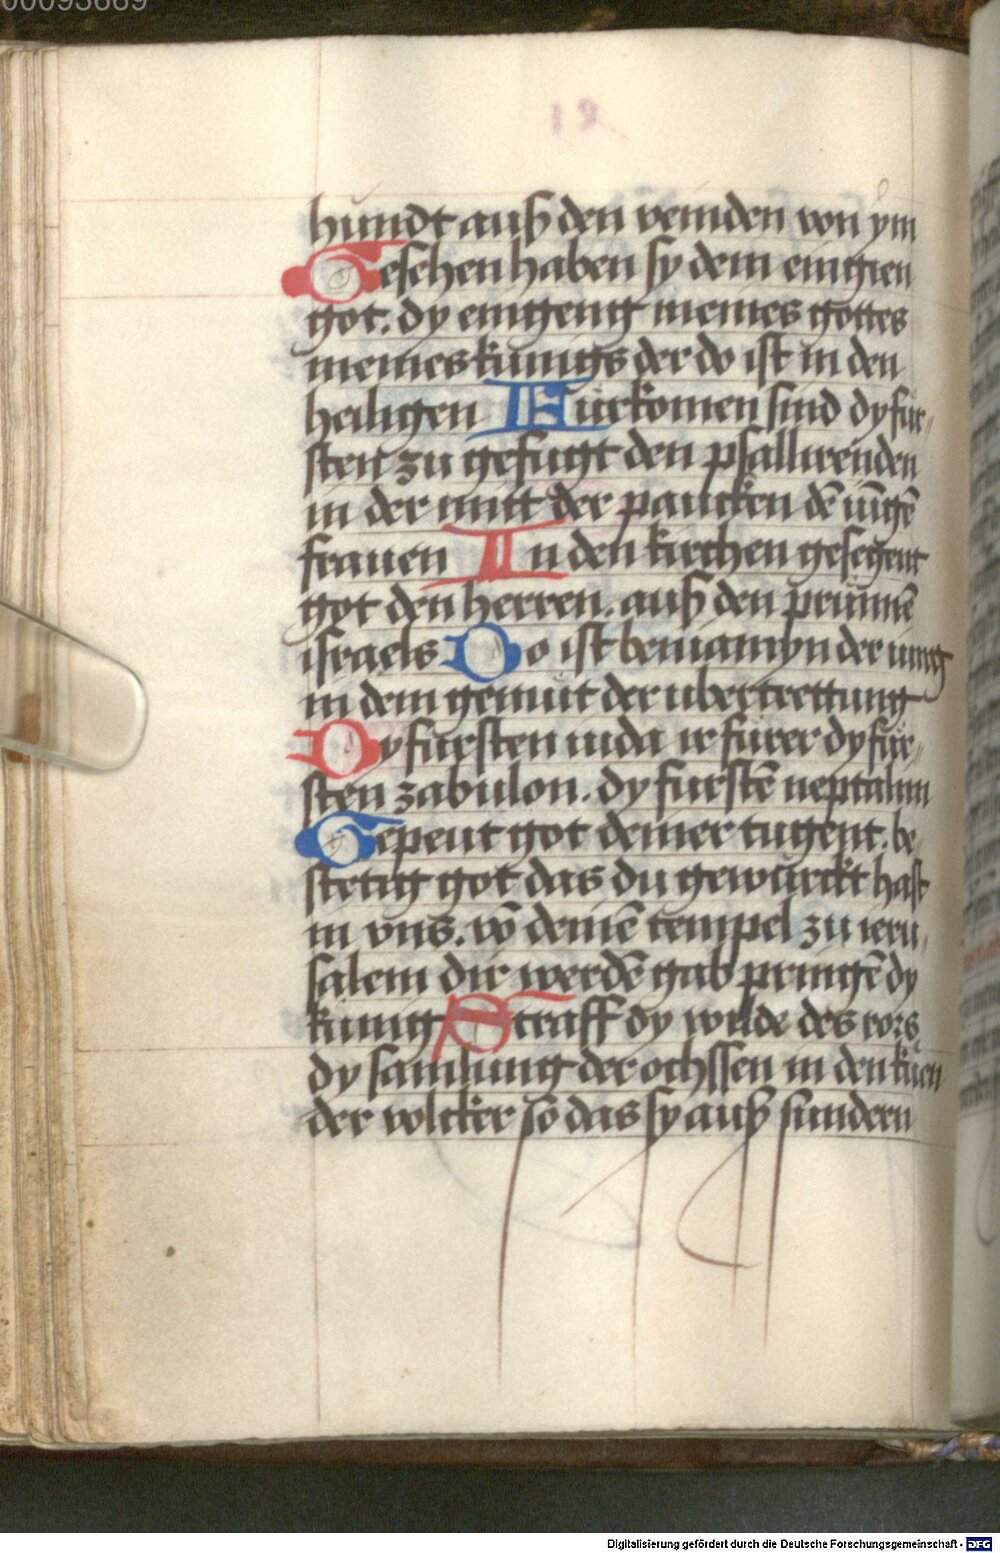 00093669
19
hundt auß den veinden von ym
Geschen haben sy dem eingien
got. dy eingeng meines gottes
meines kunigs der do ist in den
heiligen Furkomen sind dy fur-
sten zu gefugt den psallirenden
in der mitt der paucken dē iūgē
frauen In den kirchen gesegent
got den herren. auß den prunnē
israels Do ist beniamyn der iung
in dem gemut der ubertrettung
Dy fursten iuda ir furer dy fur-
sten zabulon. dy furstē neptalim
Gepeut got deiner tugent. be
stetig got das du gewurckt hast
in vns. vō deinē tempel zu ieru-
salem dir werdē gab pringē dy
kunig Straff dy wilde des rors
dy samlung der ochssen in den kuen
der volcker so das sy auß sundern
Digitalisierung gefördert durch die Deutsche Forschungsgemeinschaft - DFG